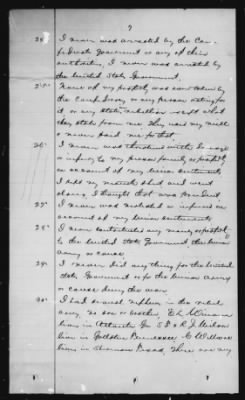 7
23" I never was arrested by the Con-
federate Government or any of their
authorities, I never was arrested by
the United States Government.
None of my property was ever taken by
the Confederacy or any person acting for
it or any state, except what
they stole from me. They used my mill
& never paid me for that.
26" I never was threatened with damage
or injury to my person family or property
on account of my Union sentiments
I kept my mouth shut and went
along, I thought that was prudent
27" I never was molested or injured on
account of my Union sentiments
28" I never contributed any money or property
to the United States Government the Union
army or cause
29" I never did any thing for the United
States Government or for the Union army
or cause during the war
30" I had several nephews in the rebel
army, no son or brother,
lives in Atlanta Ga. J. Wilson
lives in Tennessee Wilson
lives in There are any